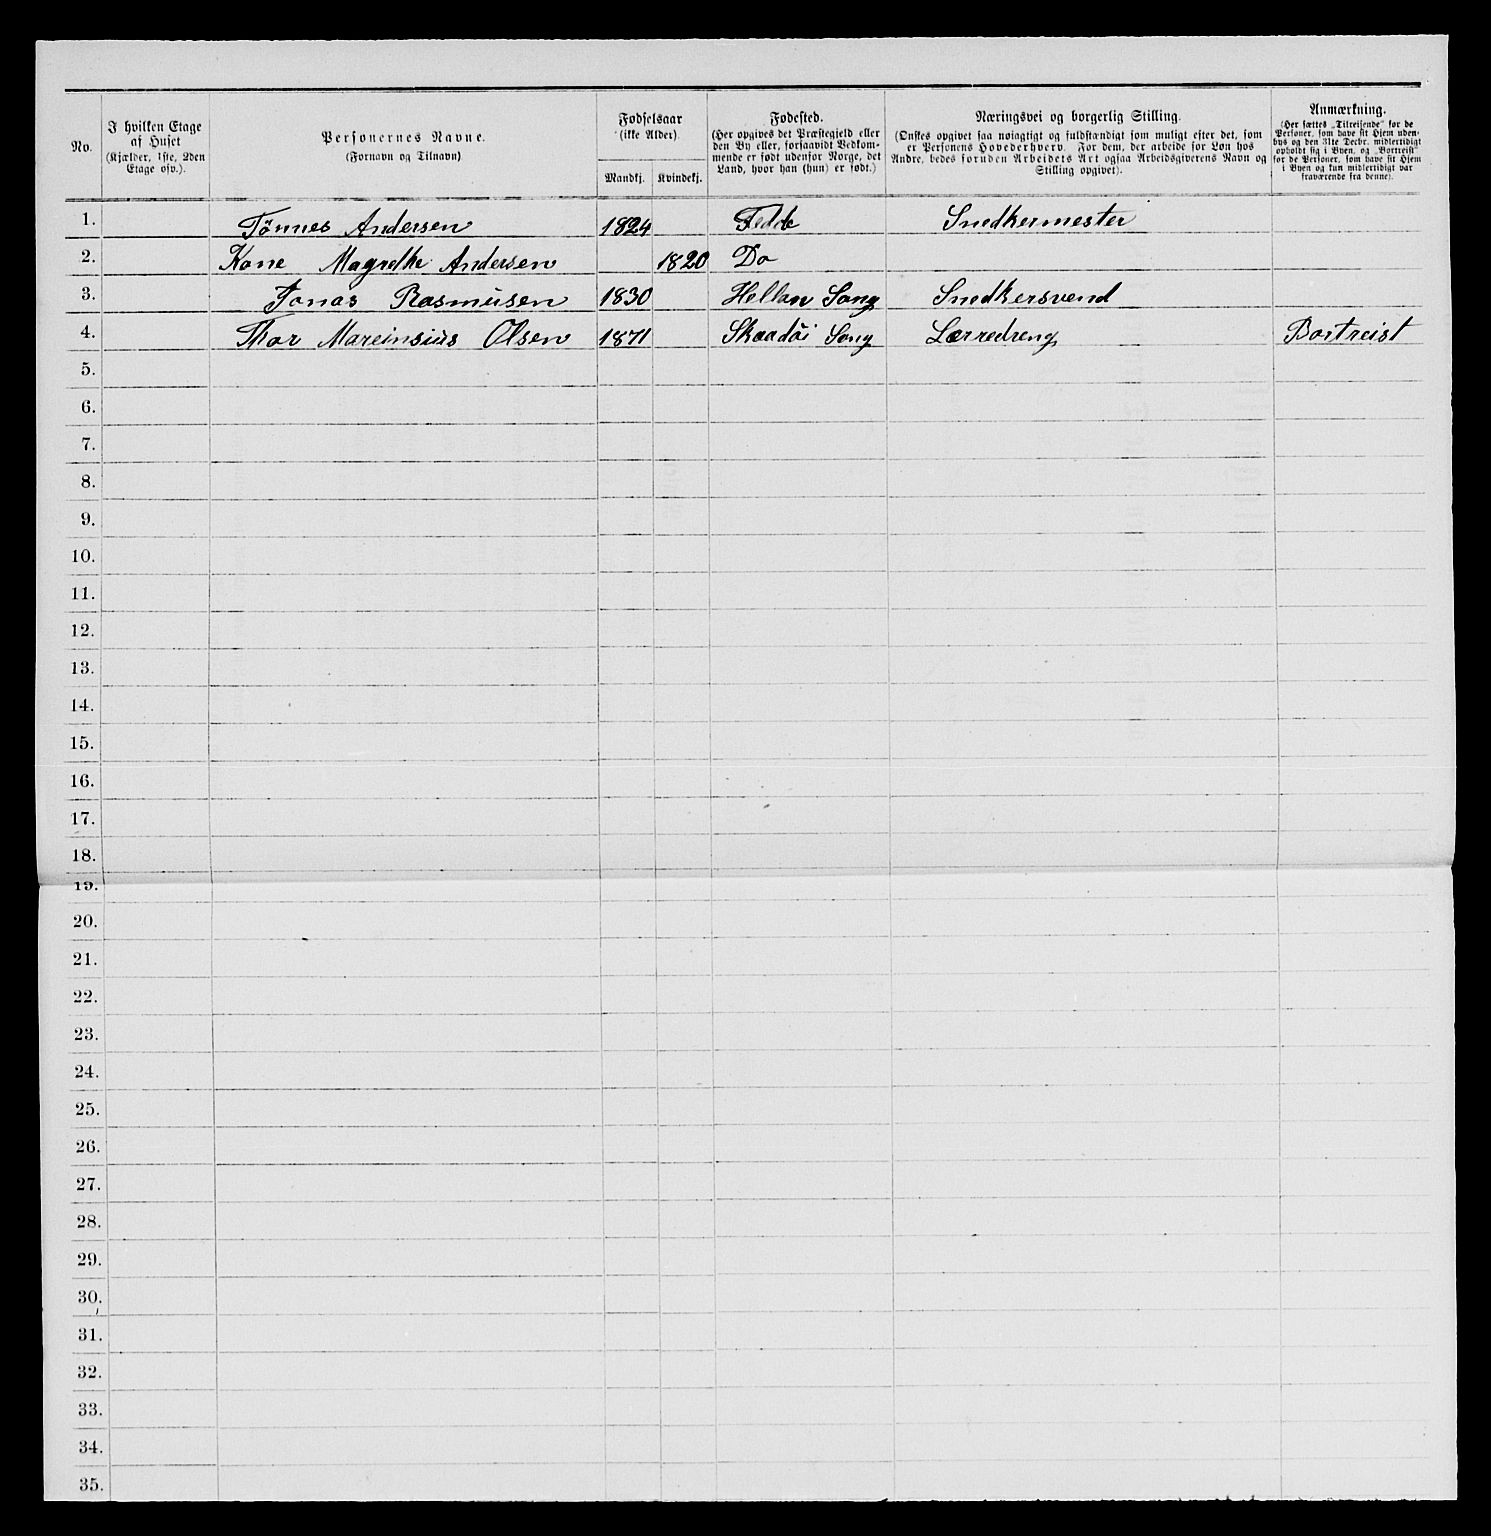 No.
I hvilken Etage af Huset
(Kjælder, 1ste, 2den Etage osv.).
Personernes Navne.
(Fornavn og Tilnavn)
Fødselsaar
(ikke Alder)
Mandkj. Kvindekj.
Fødested.
(Her opgives det Præstegjeld eller
den By eller, forsaavidt Vedkom-
mende er født udenfor Norge, det
Land, hvor han (hun) er født.)
Næringsvei og borgerlig Stilling.
(Ønskes opgivet saa nøiagtigt og fuldstændigt som muligt efter det, som
er Personens Hovederhverv. For dem, der arbeide for Løn hos
Andre, bedes foruden Arbeidets Art ogsaa Arbeidsgiverens Navn og
Stilling opgivet).
Anmærkning.
(Her sættes „Tilreisende" for de
Personer, som have sit Hjem uden-
bys og den 31te Decbr. midlertidigt
opholdt sig i Byen, og „Bortreist"
for de Personer, som have sit Hjem
i Byen og kun midlertidigt var
fraværende fra denne).
1. Tønnes Andersen 1824 Fedde Snedkermester
2. Kone Magrethe Andersen 1820 Do
3. Jonas Rasmusen 1830 Helland Sogn Snedkersvend
4. Thor Mareinsius Olsen 1871 Sogn Lærredreng Bortreist
5.
6.
7.
8.
9.
10.
11.
12.
13.
14.
15.
16.
17.
18.
19.
20.
21.
22.
23.
24.
25.
26.
27.
28.
29.
30.
31.
32.
33.
34.
35.